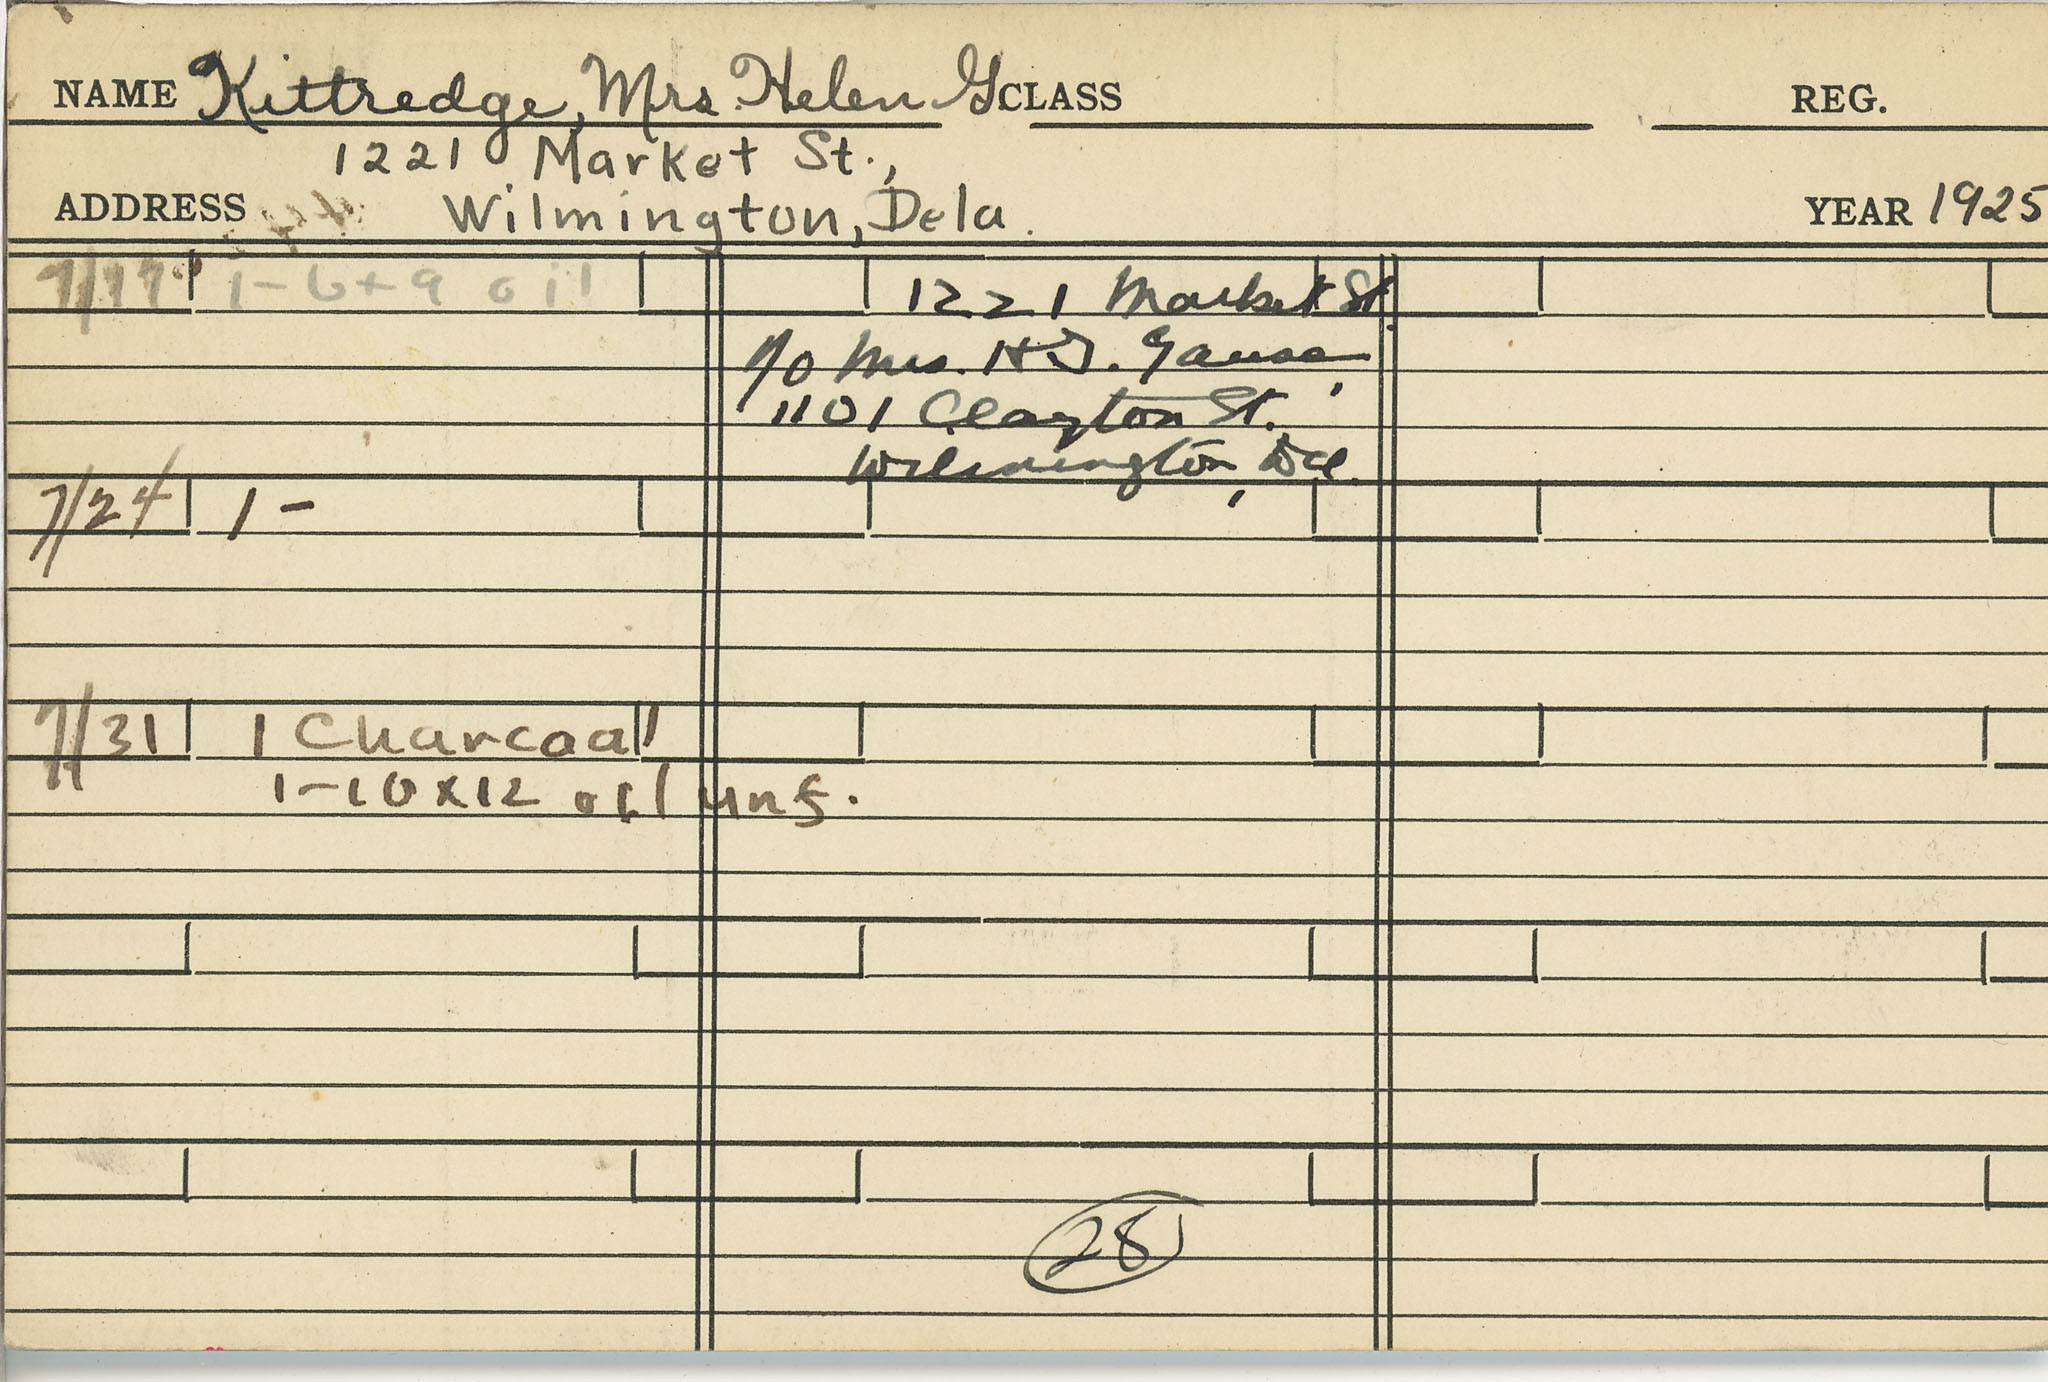 NAME Kittredge, Mrs. Helen G CLASS REG.
1221 Market St.,
ADDRESS Wilmington, Dela. YEAR 1925
7/17 1-6+9 oil
1221 Market St.
c/o Mrs. H.T. Gause,
1101 Clayton St.
Wilmington, Del.
7/24 1 -
7/31 1 Charcoal
1-10x12 oil unf.
28